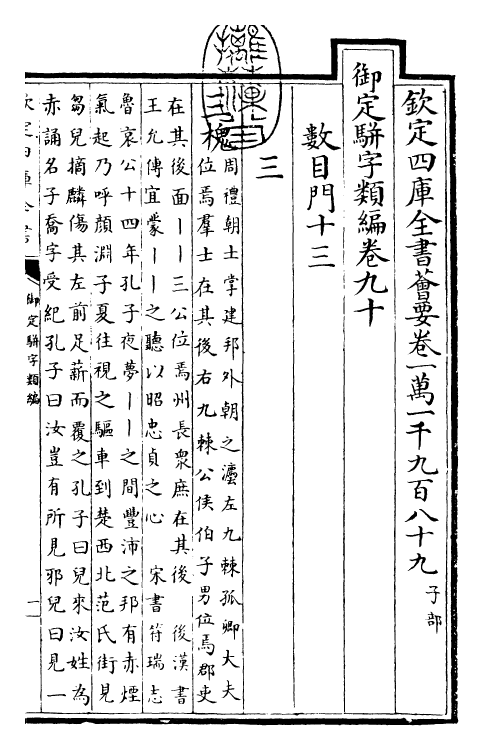 欽定四庫全書薈要卷一萬一千九百八十九 子部
御定駢字類編卷九十
數目門十三
三
三槐 周禮朝士掌建邦外朝之灋左九棘孤卿大夫
位焉羣士在其後右九棘公侯伯子男位焉郡吏
在其後面丨丨三公位焉州長衆庶在其後 後漢書
王允傳宜蒙丨丨之聽以昭忠貞之心 宋書符瑞志
魯哀公十四年孔子夜夢丨丨之間豐沛之邦有赤煙
氣起乃呼顔淵子夏往視之驅車到楚西北范氏街見
芻兒摘麟傷其左前足薪而覆之孔子曰兒來汝姓為
赤誦名子喬字受紀孔子曰汝豈有所見邪兒曰見一
欽定四庫全書
御定駢字類編
一